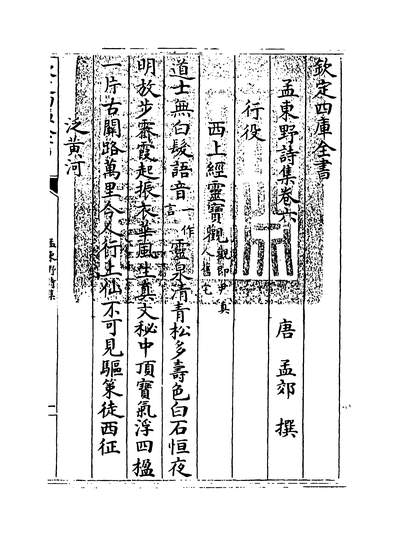 欽定四庫全書
孟東野詩集卷六
唐 孟郊 撰
行役
西上經靈寶觀 觀即尹真人舊宅
道士無白髮語音一作言靈泉清青松多壽色白石恒夜
明放步霽霞起振衣華風生真文秘中頂寶氣浮四楹
一片古關路萬里今人行上仙不可見驅策徒西征
泛黃河
孟東野詩集